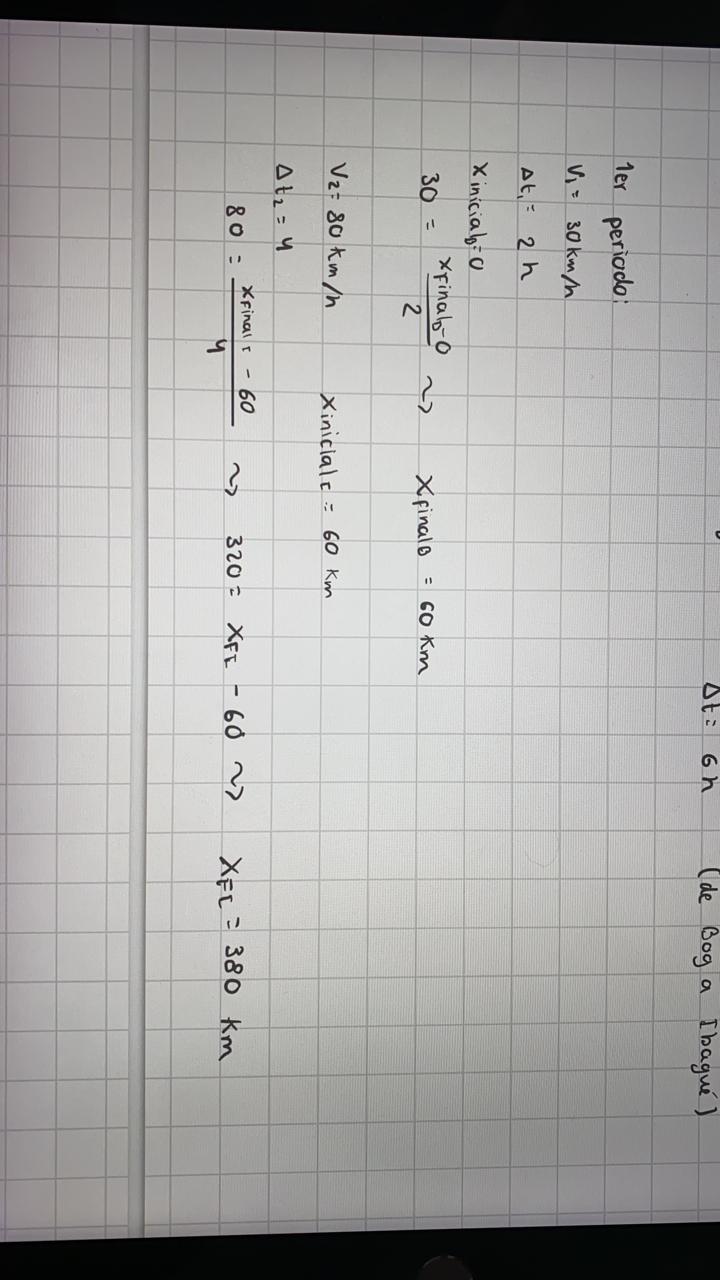 Δt = 6 h (de Bog a Ibagué)
1er periodo:
V₁ = 30 km/h
Δt₁ = 2 h
x inicial_b = 0
30 = (x final_b - 0)/2 ⤳ x final_B = 60 Km
V₂ = 80 km/h x inicial_I = 60 Km
Δt₂ = 4
80 = (x final_I - 60)/4 ⤳ 320 = x_FI - 60 ⤳ x_FI = 380 Km